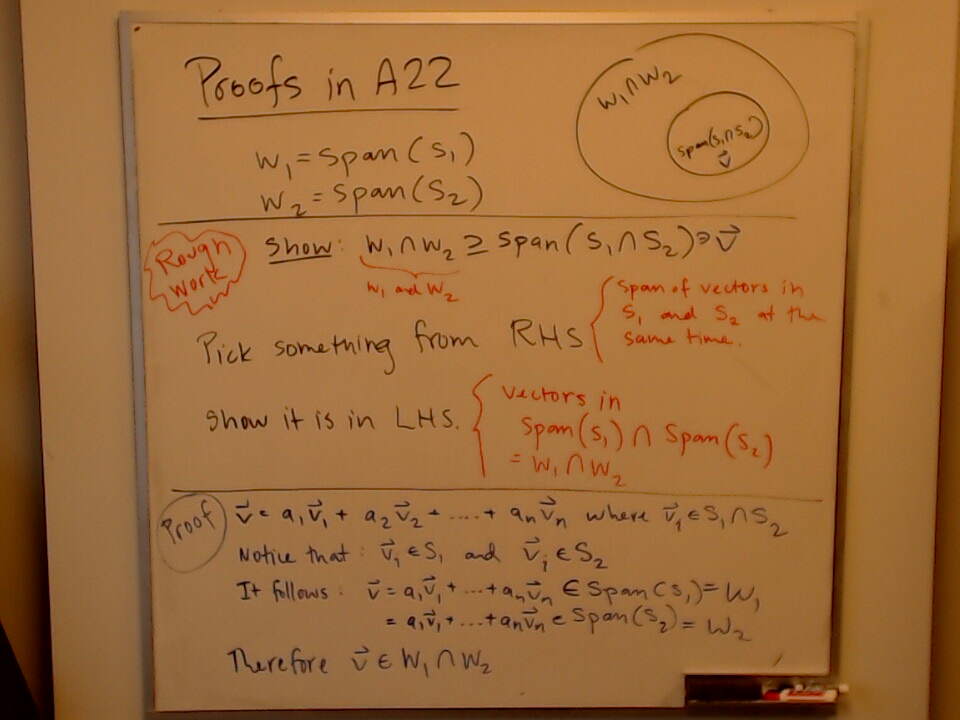 Proofs in A22
W₁ ∩ W₂
span(S₁∩S₂)
v⃗
W₁ = span(S₁)
W₂ = span(S₂)
Rough
work
Show: W₁ ∩ W₂ ⊇ span(S₁ ∩ S₂) ∋ v⃗
W₁ and W₂
Pick something from RHS
Span of vectors in
S₁ and S₂ at the
same time.
Show it is in LHS.
Vectors in
Span(S₁) ∩ Span(S₂)
= W₁ ∩ W₂
Proof
v⃗ = a₁v⃗₁ + a₂v⃗₂ + ..... + aₙv⃗ₙ where v⃗ⱼ ∈ S₁ ∩ S₂
Notice that: v⃗ⱼ ∈ S₁ and v⃗ⱼ ∈ S₂
It follows: v⃗ = a₁v⃗₁ + ... + aₙv⃗ₙ ∈ Span(S₁) = W₁
= a₁v⃗₁ + ... + aₙv⃗ₙ ∈ Span(S₂) = W₂
Therefore v⃗ ∈ W₁ ∩ W₂